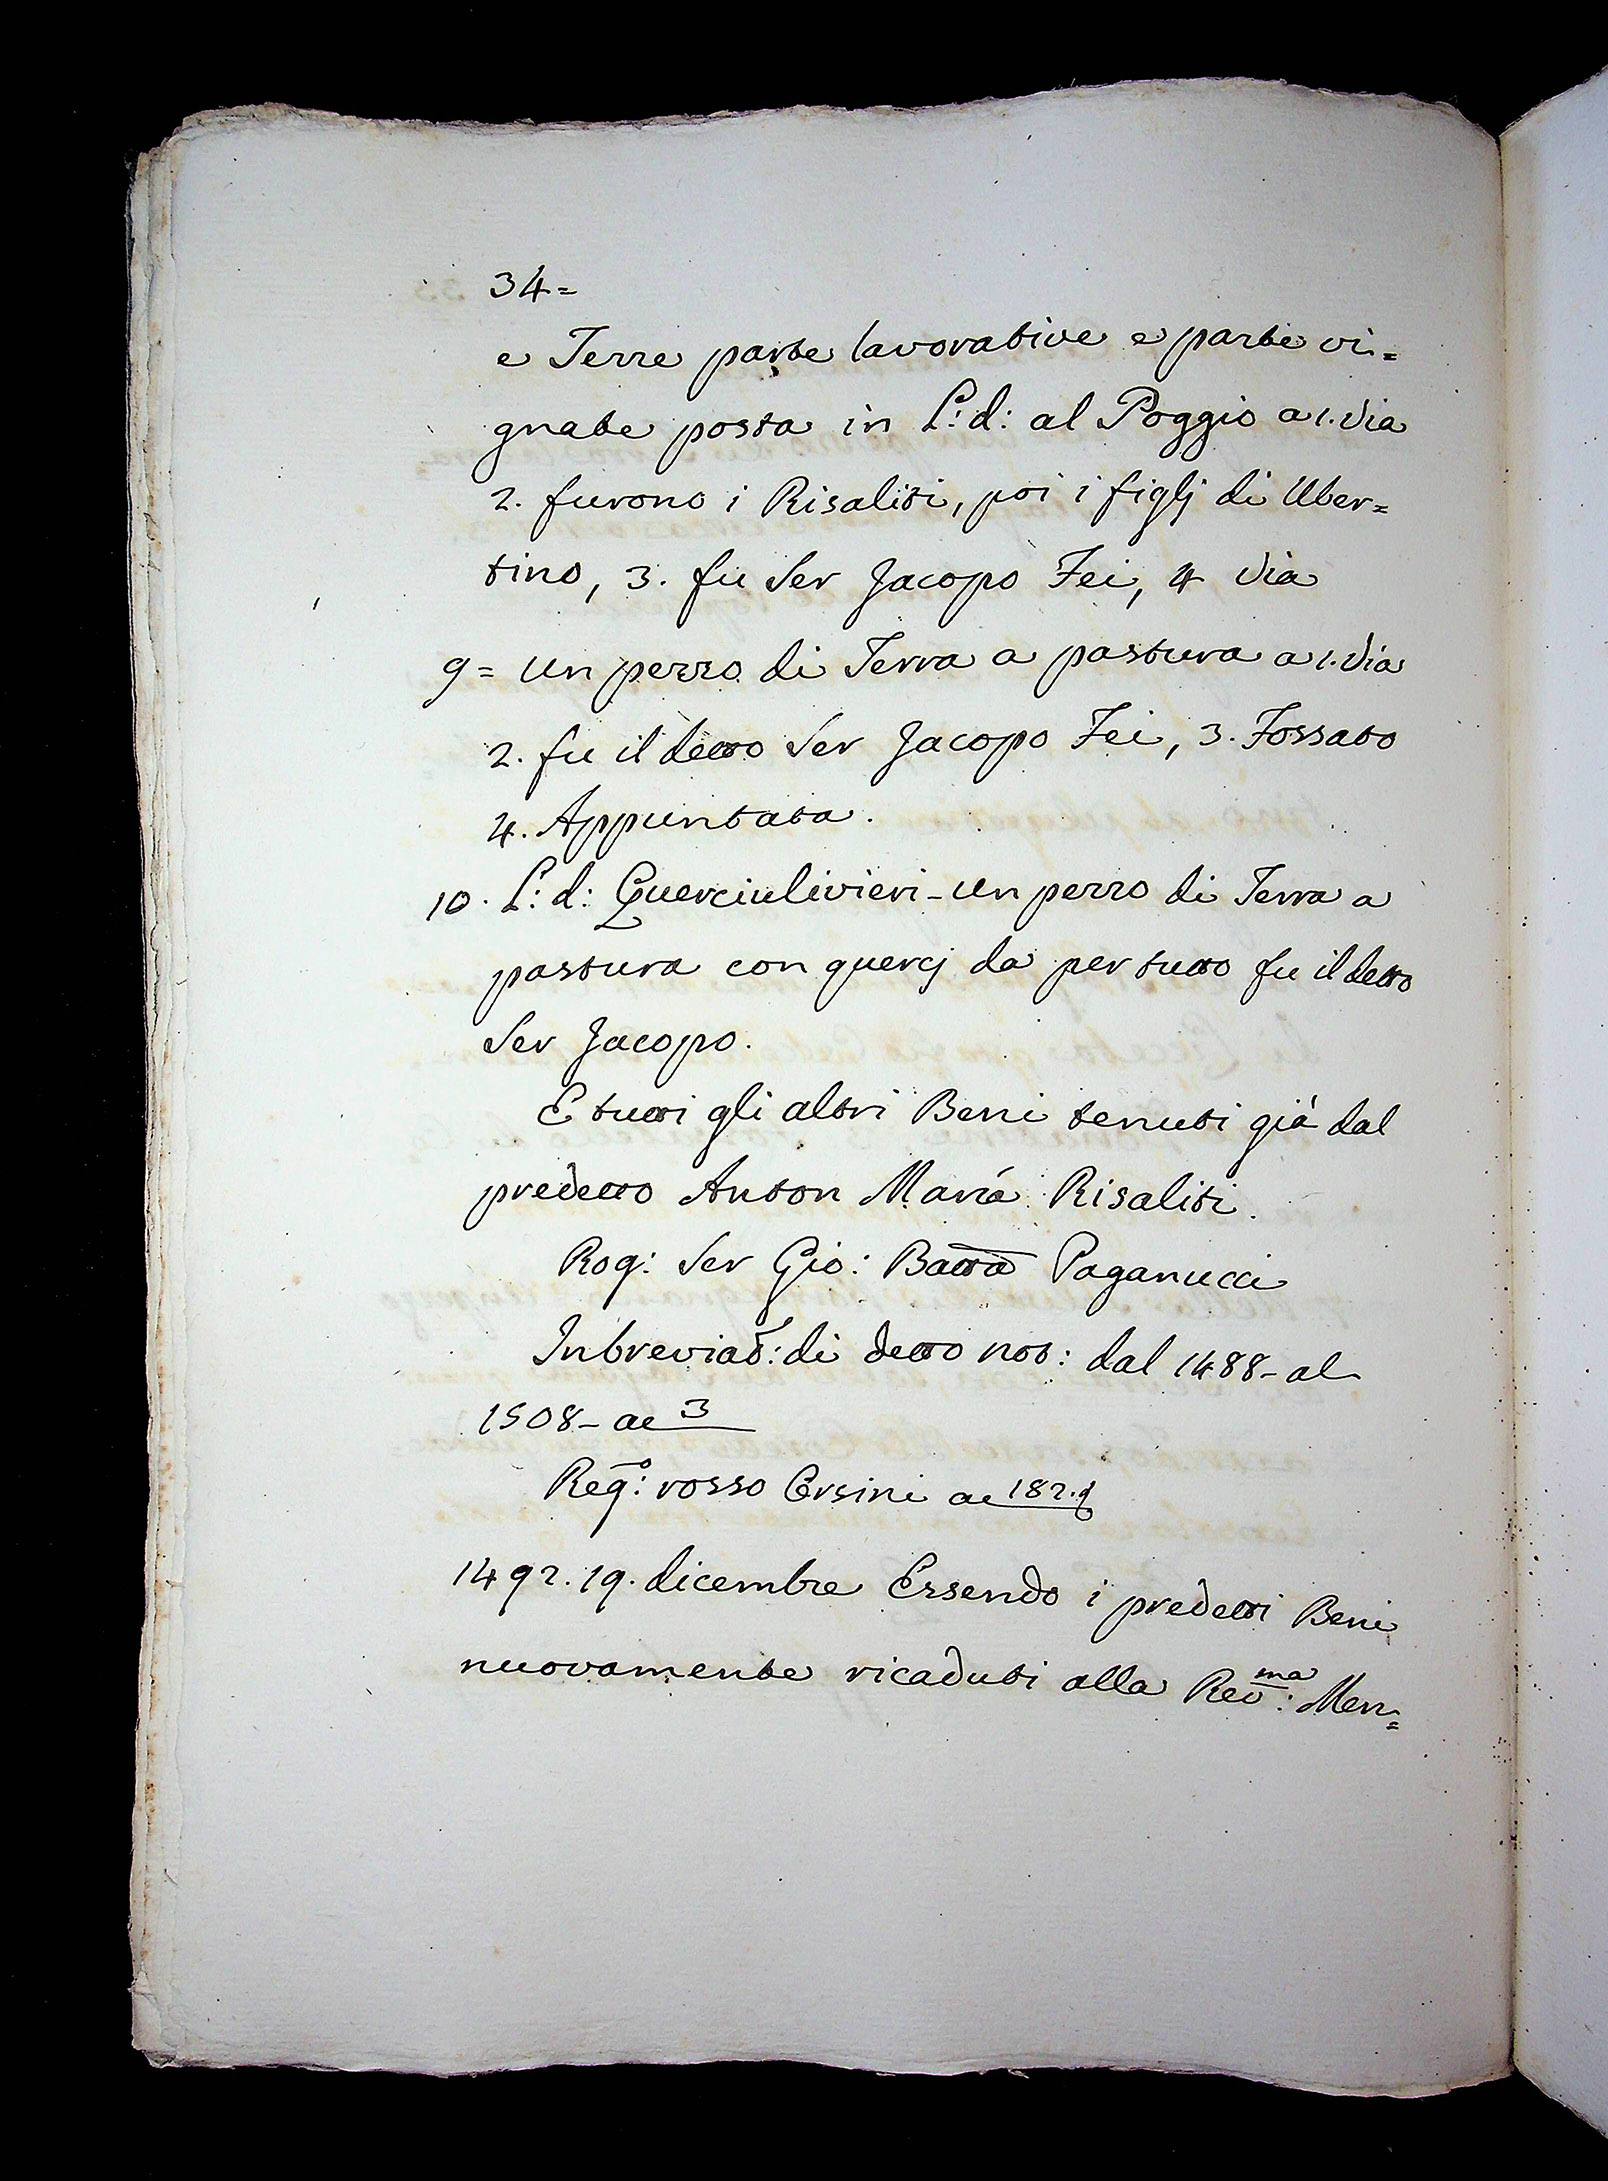 34=
e Terre parte lavorative e parte vi=
gnate posta in L: d: al Poggio a 1. Via
2. furono i Risaliti, poi i figlj di Uber=
tino, 3. fu Ser Jacopo Fei, 4 Via
9= Un pezzo di Terra a pastura a 1. Via
2. fu il detto Ser Jacopo Fei, 3. Fossato
4. Appuntata.
10. L: d: Querciulivieri - Un pezzo di Terra a
pastura con quercj da per tutto fu il detto
Ser Jacopo.
E tutti gli altri Beni tenuti già dal
predetto Anton Maria Risaliti.
Rog: Ser Gio: Batta Paganucci
Inbreviat: di detto not: dal 1488 - al
1508 - ae 3
Rego: rosso Orsini ae 182.
1492. 19. dicembre Essendo i predetti Beni
nuovamente ricaduti alla Revma: Men=